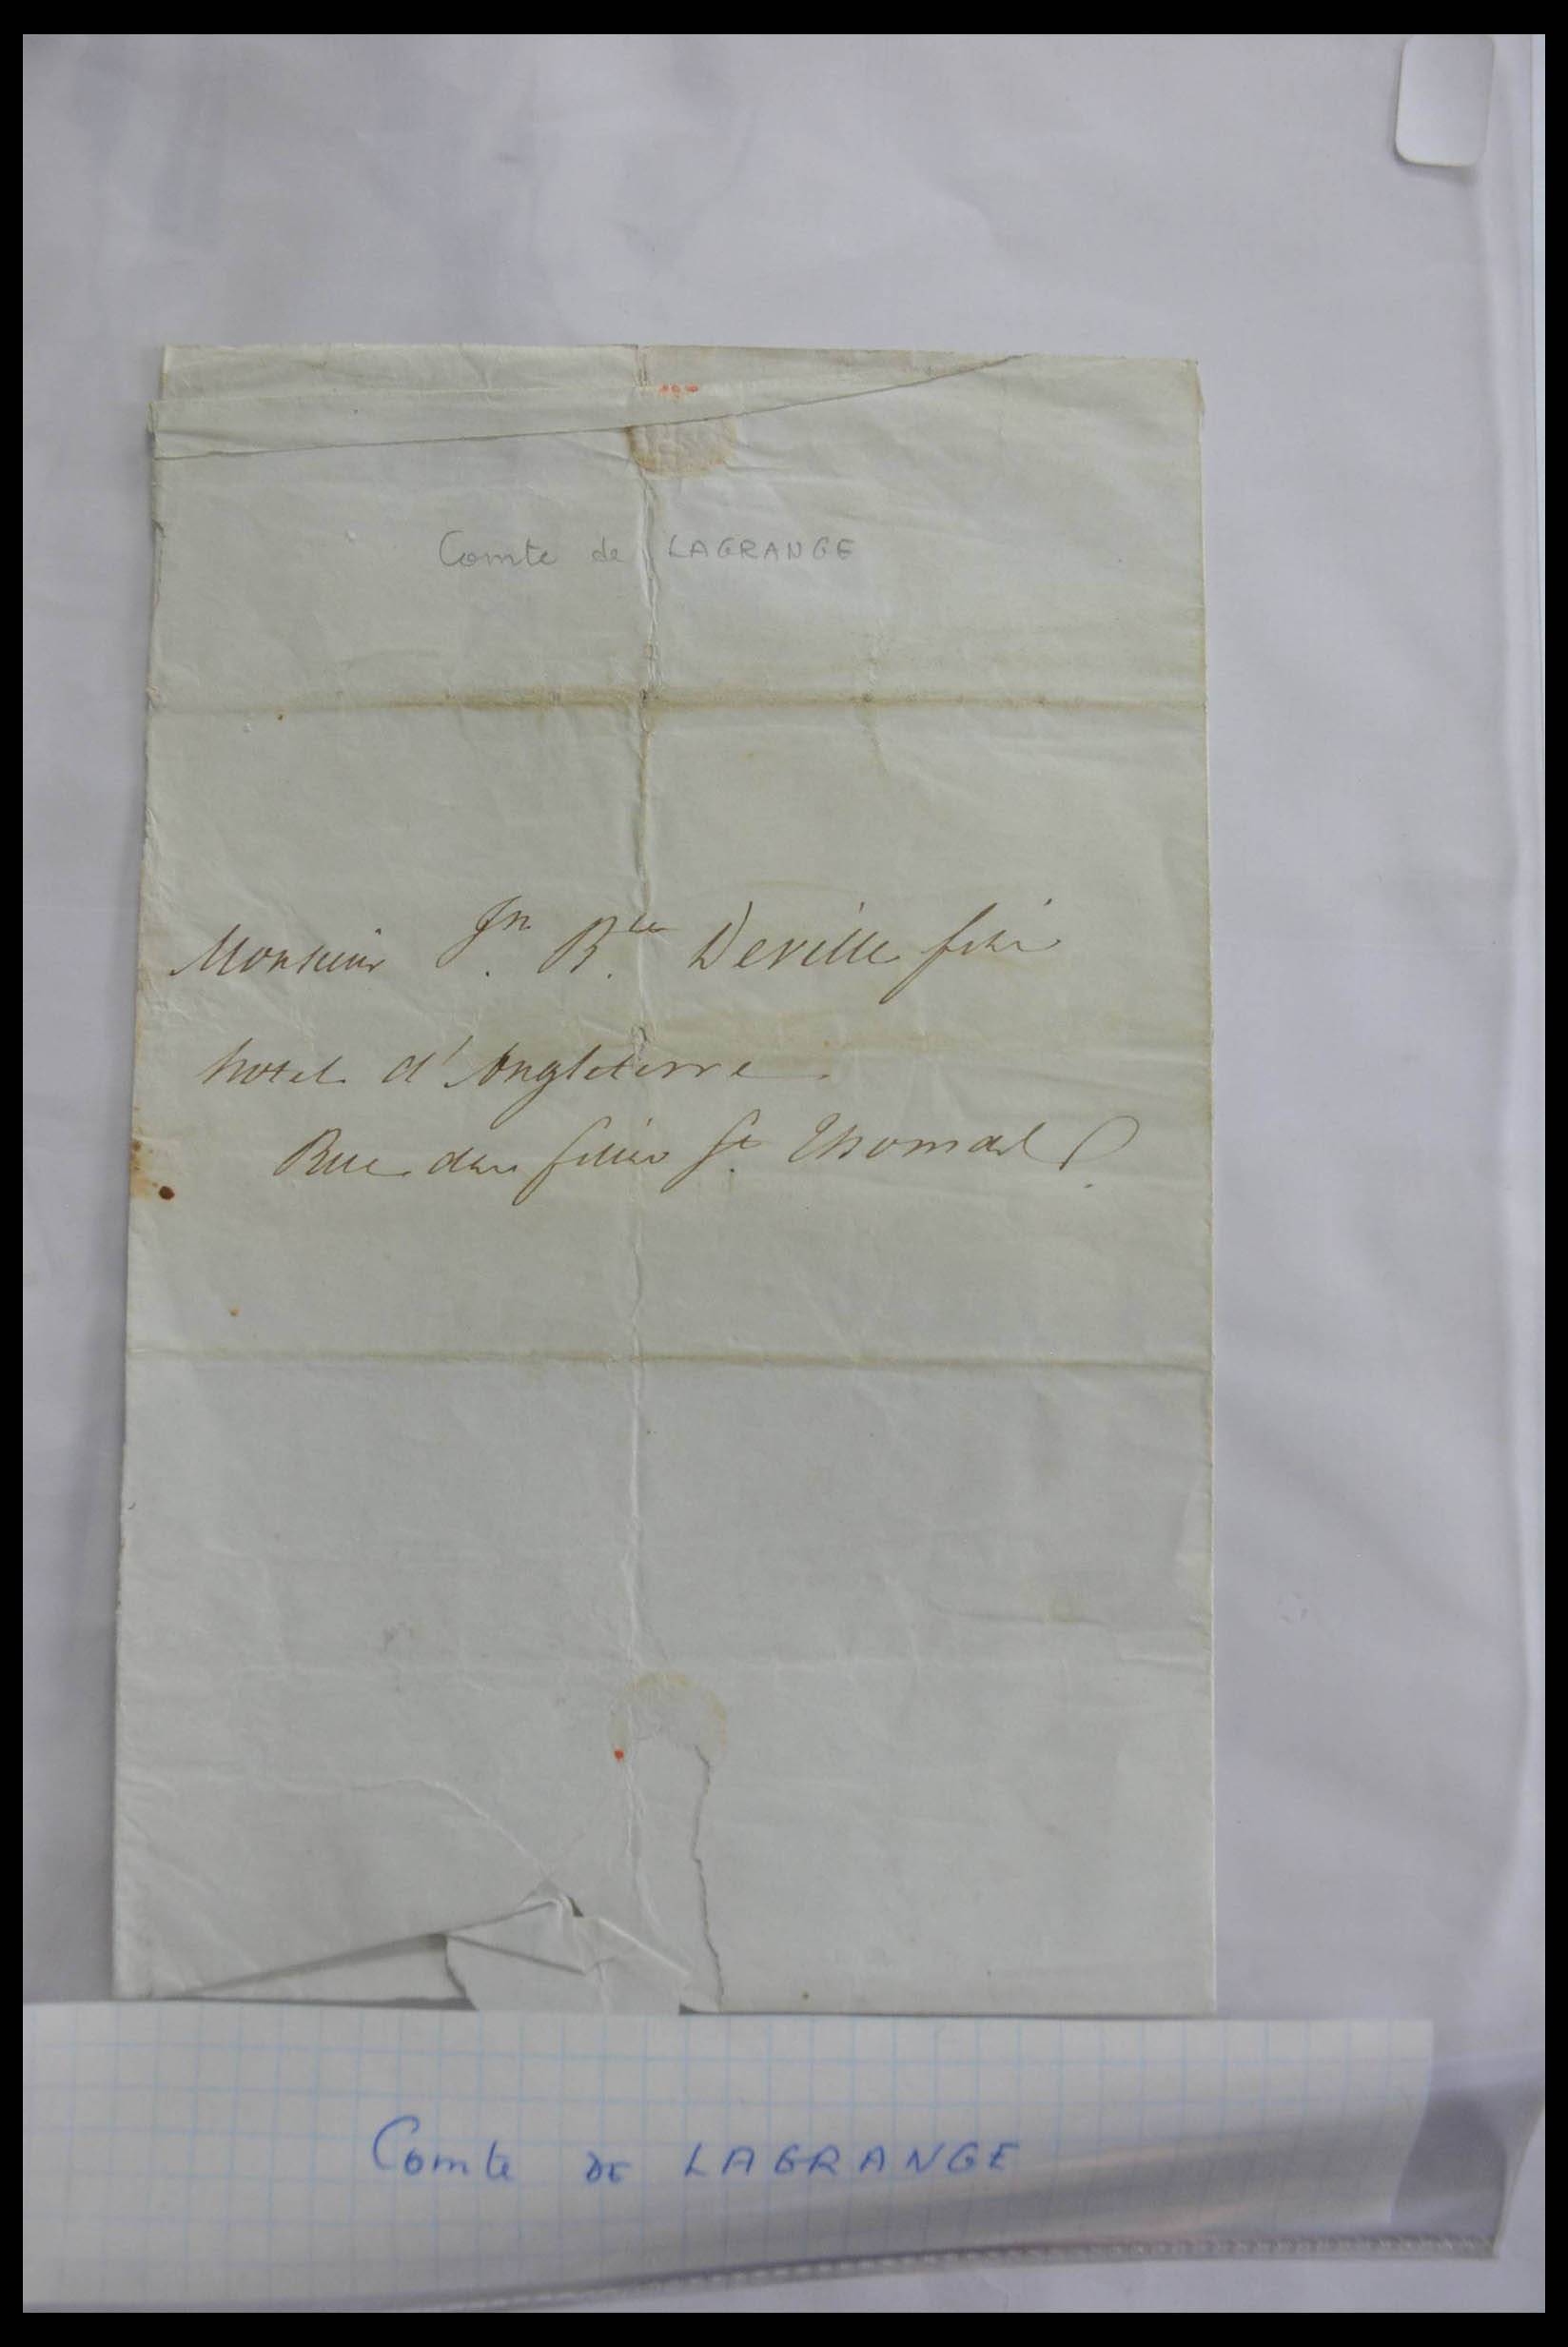 Comte de LAGRANGE
Monsieur Jn. Bte. Deville fils
hotel d'Angleterre
Rue des filles St. Thomas
Comte DE LAGRANGE